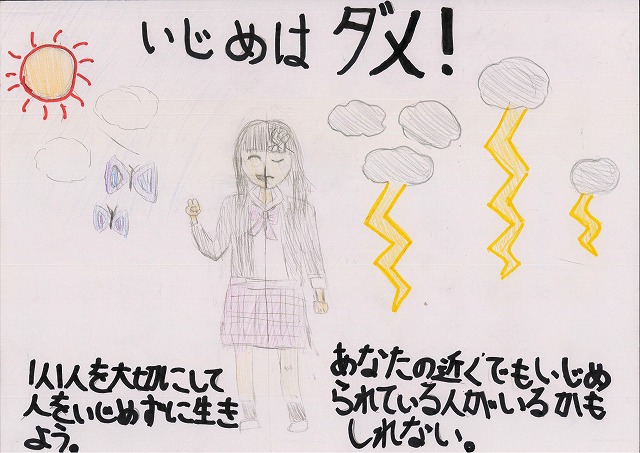 いじめは ダメ!
1人1人を大切にして
人をいじめずに生き
よう。
あなたの近くでもいじめ
られている人がいるかも
しれない。